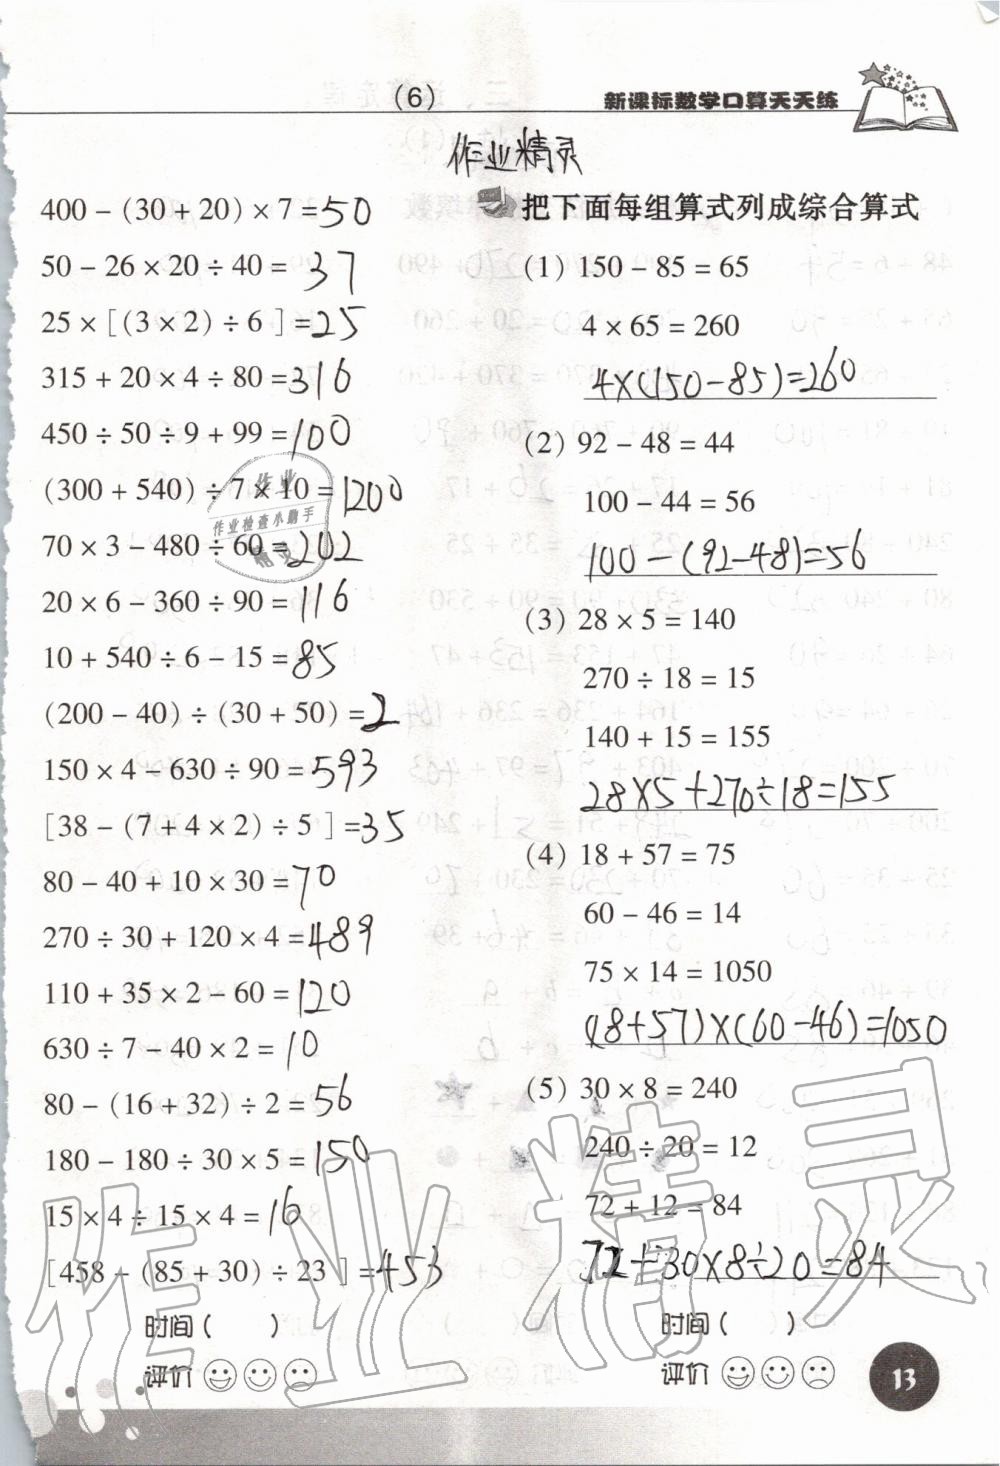 (6)
新课标数学口算天天练
作业精灵
400 − (30 + 20) × 7 = 50
50 − 26 × 20 ÷ 40 = 37
25 × [ (3 × 2) ÷ 6 ] = 25
315 + 20 × 4 ÷ 80 = 316
450 ÷ 50 ÷ 9 + 99 = 100
(300 + 540) ÷ 7 × 10 = 1200
70 × 3 − 480 ÷ 60 = 202
20 × 6 − 360 ÷ 90 = 116
10 + 540 ÷ 6 − 15 = 85
(200 − 40) ÷ (30 + 50) = 2
150 × 4 − 630 ÷ 90 = 593
[ 38 − (7 + 4 × 2) ÷ 5 ] = 35
80 − 40 + 10 × 30 = 70
270 ÷ 30 + 120 × 4 = 489
110 + 35 × 2 − 60 = 120
630 ÷ 7 − 40 × 2 = 10
80 − (16 + 32) ÷ 2 = 56
180 − 180 ÷ 30 × 5 = 150
15 × 4 ÷ 15 × 4 = 16
[ 458 − (85 + 30) ÷ 23 ] = 453
时间 ( )
评价
把下面每组算式列成综合算式
(1) 150 − 85 = 65
4 × 65 = 260
4×(150−85)=260
(2) 92 − 48 = 44
100 − 44 = 56
100−(92−48)=56
(3) 28 × 5 = 140
270 ÷ 18 = 15
140 + 15 = 155
28×5+270÷18=155
(4) 18 + 57 = 75
60 − 46 = 14
75 × 14 = 1050
(18+57)×(60−46)=1050
(5) 30 × 8 = 240
240 ÷ 20 = 12
72 + 12 = 84
72+30×8÷20=84
时间 ( )
评价
13
作业
作业检查小助手
精灵
作业精灵